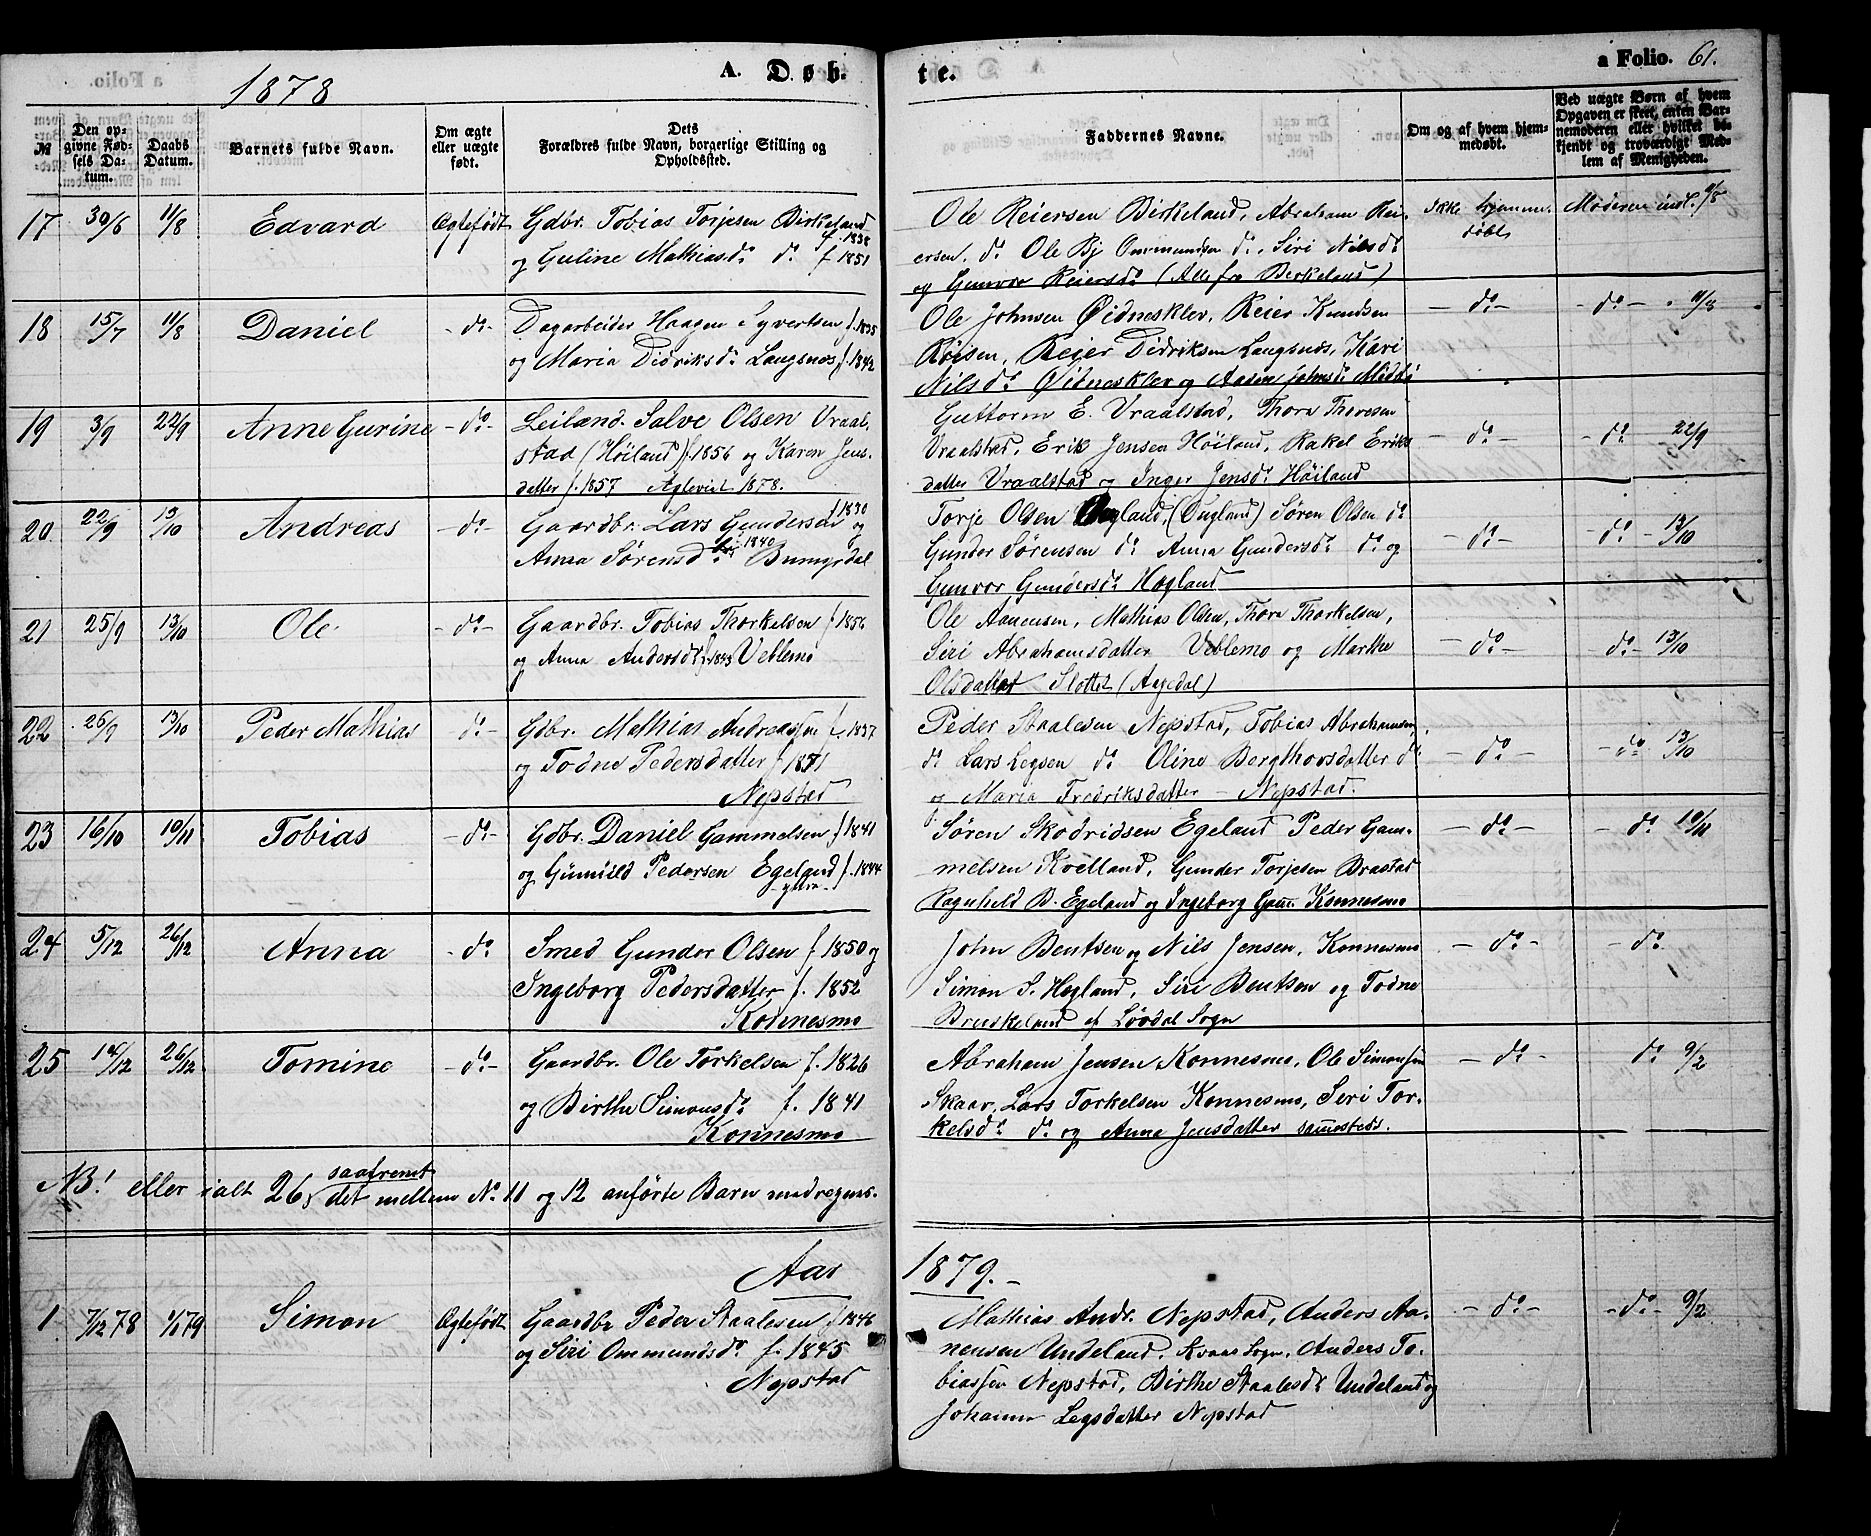 1878 A. Døbte. a Folio. 61.
№ Den opgivne Fødsels Datum. Daabs Datum. Barnets fulde Navn. Om ægte eller uægte født. Dets Forældres fulde Navn, borgerlige Stilling og Opholdssted. Faddernes Navne. Om og af hvem hjemmedøbt. Ved uægte Børn af hvem Opgaven er skeet, enten Barnemoderen eller hvilket bekjendt og troværdigt Medlem af Menigheden.
17 30/6 11/8 Edvard Ægtefødt Gdbr. Tobias Torjesen Birkeland f. 1838
og Guline Mathiasd. do f. 1851
Ole Reiersen Birkeland, Abraham Rei-
ersen do Ole Bj Ommundsen do, Siri Nilsd.
og Gunvor Reiersd. (Alle fra Birkeland)
Ikke hjemme-
døbt
Moderen indl. 11/8
18 15/7 11/8 Daniel - do - Dagarbeider Haagen Syvertsen f. 1835
og Maria Didriksd. Laugsnæs f. 1842
Ole Johnsen Øidnesklev, Reier Knudsen
Røisen, Reier Didriksen Laugsnæs, Kari
Nilsd. Øidnesklev og Aasen Johnsd.
- do - - do - 11/8
19 3/9 22/9 Anne Gurine - do - Leilænd. Salve Olsen Vraal-
stad (Høiland) f. 1856 og Karen Jens-
datter f. 1857 Ægteviet 1878.
Guttorm E. Vraalstad, Thore Thoresen
Vraalstad, Erik Jensen Høiland, Rakel Eriks
datter Vraalstad og Inger Jensd. Høiland
- do - - do - 22/9
20 22/9 13/10 Andreas - do - Gaardbr. Lars Gundersen f 1830 og
Anna Sørensd. f. 1840
Torje Olsen Øugland, (Øugland) Søren Olsen do
Gunder Sørensen do Anna Gundersd. do og
Gunvor Gundersd. Hogland
- do - - do - 13/10
21 25/9 13/10 Ole. - do - Gaardbr. Tobias Thorkelsen f 1856
og Anna Andersd. f. 1843 Veblemo
Ole Aanensen, Mathias Olsen, Thore Thorkelsen,
Siri Abrahamsdatter Veblemo og Marthe
Olsdatter Slottet (Aasedal)
- do - - do - 13/10
22 26/9 13/10 Peder Mathias - do - Gdbr. Mathias Andreassen f. 1837
og Todne Pedersdatter f 1841
Nepstad
Peder Staalesen Nepstad, Tobias Abrahamsen,
do Lars Legsen do Oline Bergthorsdatter do
og Maria Fredriksdatter - Nepstad.
- do - - do 13/10
23 16/10 10/11 Tobias - do - Gdbr. Daniel Gammelsen f 1841
og Gunnild Pedersen Egeland f. 1844
- ydtre -
Søren Skodridsen Egeland Peder Gam-
melsen Kvelland, Gunder Torjesen Brastad
Ragnhild B. Egeland og Ingeborg Gam. Konnesmo
- do - - do 10/11
24 5/12 26/12 Anna - do Smed Gunder Olsen f 1850 og
Ingeborg Pedersdatter f. 1852
Konnesmo
John Bentsen og Nils Jensen, Konnesmo
Simon S. Hegland, Siri Bentsen og Todne
Bruskeland af Løvdal Sogn
- do - - do
25 14/12 26/12 Tomine - do - Gaardbr. Ole Torkelsen f. 1826
og Birthe Simonsd. f. 1841
Konnesmo
Abraham Jensen Konnesmo, Ole Simonsen
Skaar, Lars Torkelsen Konnesmo, Siri Tor-
kelsd. do og Anne Jensdatter sammesteds.
- do - do 9/2
NB! eller ialt 26, saafremt det mellem No 11 og 12 anførte Barn medregnes.
Aar 1879. -
1. 7/12 78 1/1 79 Simon Ægtefødt Gaardbr Peder Staalesen f 1848
og Siri Ommundsd. f. 1845
Nepstad
Mathias Andr. Nepstad, Anders Aa-
nensen Undeland, Kvaas Sogn, Anders To-
biassen Nepstad, Birthe Staalesd. Undeland og
Johanne Legsdatter Nepstad
- do - - do - 9/2